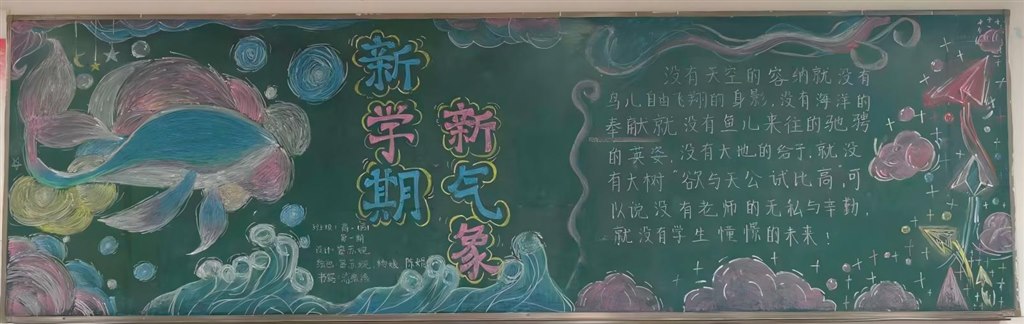 新学期
新气象
没有天空的容纳就没有
鸟儿自由飞翔的身影，没有海洋的
奉献就没有鱼儿来往的驰骋
的英姿，没有大地的给予，就没
有大树“欲与天公试比高，可
以说没有老师的无私与辛勤，
就没有学生憧憬的未来！